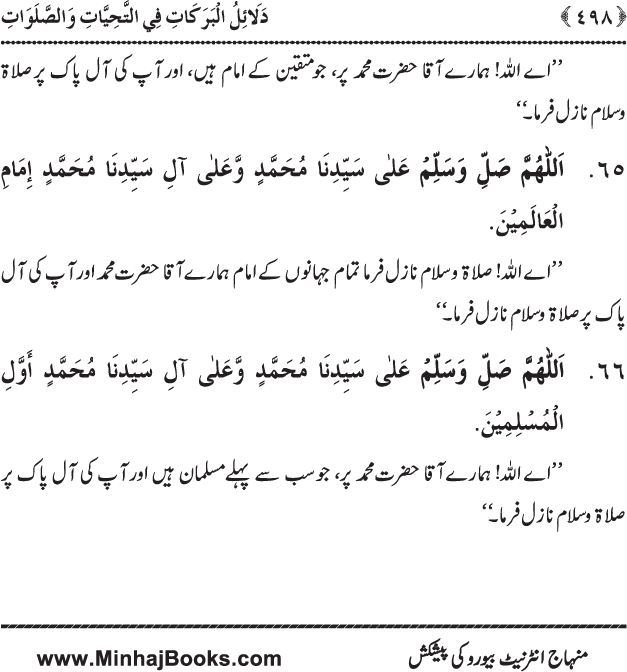 ﴿٤٩٨﴾ دَلَائِلُ الْبَرَكَاتِ فِي التَّحِيَّاتِ وَالصَّلَوَاتِ
’’اے اللہ! ہمارے آقا حضرت محمد پر، جو متقین کے امام ہیں، اور آپ کی آل پاک پر صلاۃ
وسلام نازل فرما۔‘‘
٦٥. اَللّٰهُمَّ صَلِّ وَسَلِّمْ عَلٰى سَيِّدِنَا مُحَمَّدٍ وَّعَلٰى آلِ سَيِّدِنَا مُحَمَّدٍ إِمَامِ
الْعَالَمِيْنَ.
’’اے اللہ! صلاۃ وسلام نازل فرما تمام جہانوں کے امام ہمارے آقا حضرت محمد اور آپ کی آل
پاک پر صلاۃ وسلام نازل فرما۔‘‘
٦٦. اَللّٰهُمَّ صَلِّ وَسَلِّمْ عَلٰى سَيِّدِنَا مُحَمَّدٍ وَّعَلٰى آلِ سَيِّدِنَا مُحَمَّدٍ أَوَّلِ
الْمُسْلِمِيْنَ.
’’اے اللہ! ہمارے آقا حضرت محمد پر، جو سب سے پہلے مسلمان ہیں اور آپ کی آل پاک پر
صلاۃ وسلام نازل فرما۔‘‘
منہاج انٹرنیٹ بیورو کی پیشکش www.MinhajBooks.com